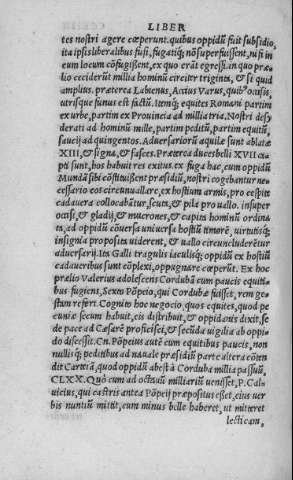 LIBER
tes nostri agere cœperunt. quibus oppidũ fuit subsidio,
ita ipsis liberalibus fusi, fugatiq; nõ superfuissent, ni si in
eum locum cõfugißent, ex quo erãt egressi. in quo præ-
lio ceciderũt millia hominũ circiter triginta, & si quid
amplius. præterea Labienus, Accius Varus, quib' occisis,
utrisque funus est factũ. Itemq; equites Romani partim
ex urbe, partim ex Prouincia ad millia tria. Nostri desy
derati ad hominũ mille, partim peditũ, partim equitũ,
saucij ad quingentos. Aduersariorũ aquilæ sunt ablatæ
XIII, & signa, & fasces. Præterea duces belli XVII ca-
pti sunt. hos habuit res exitus. ex fuga hac, cum oppidũ
Mundã sibi cõstituißent præsidiũ, nostri cogebantur ne-
cessario eos circunuallare. ex hostium armis, pro cespite
cadauera collocabãtur, scuta, & pila pro uallo. insuper
occisi, & gladij, & mucrones, & capita hominũ ordina
ta, ad oppidũ cõuersa uniuersa hostiũ timorẽ, uirtutisq;
insignia proposita uiderent, & uallo circuncluderẽtur
aduersarij. Ita Galli tragulis iaculisq; oppidũ ex hostiũ
cadaueribus sunt cõplexi, oppugnare cœperũt. Ex hoc
prælio Valerius adolescẽs Cordubã cum paucis equiti-
bus fugiens, Sexto Põpeio, qui Cordubæ fuisset, rem ge-
stam refert. Cognito hoc negocio, quos equites, quod pe
cuniæ secum habuit, eis distribuit, & oppidanis dixit, se
de pace ad Cæsarẽ proficisci, & secũda uigilia ab oppi-
do discessit. Cn. Põpeius autẽ cum equitibus paucis, non
nullisq; peditibus ad nauale præsidiũ parte altera cõten
dit Carteiã, quod oppidũ abest à Corduba millia passuũ,
CLXX. Quò cum ad octauũ milliariũ uenisset, P. Cal-
uicius, qui castris antea Põpeij præpositus eßet, eius uer
bis nuntiũ mittit, cum minus belle haberet, ut mitteret
lecticam,